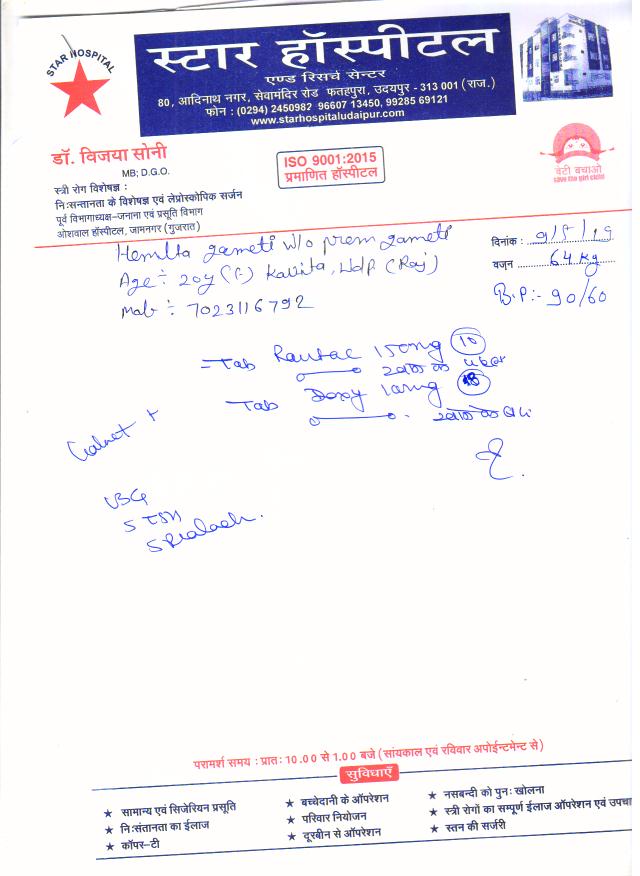 STAR HOSPITAL
स्टार हॉस्पीटल
एण्ड रिसर्च सेन्टर
80, आदिनाथ नगर, सेवामंदिर रोड फतहपुरा, उदयपुर - 313 001 (राज.)
फोन : (0294) 2450982 96607 13450, 99285 69121
www.starhospitaludaipur.com
डॉ. विजया सोनी
MB; D.G.O.
स्त्री रोग विशेषज्ञ :
निःसन्तानता के विशेषज्ञ एवं लेप्रोस्कोपिक सर्जन
पूर्व विभागाध्यक्ष-जनाना एवं प्रसूति विभाग
ओशवाल हॉस्पीटल, जामनगर (गुजरात)
ISO 9001:2015
प्रमाणित हॉस्पीटल
बेटी बचाओ
save the girl child
Hemlta gameti w/o prem gameti
Age :- 20y (F) Kavita, Udp (Raj)
Mob :- 7023116792
दिनांक : 9/5/19
वजन 64 kg
B.P:- 90/60
Tab Rantac 150mg 10
खाने के
Tab Doxy 10mg
खाने के बाद
UBG
S TSH
S Prolactin
परामर्श समय : प्रातः 10.00 से 1.00 बजे (सांयकाल एवं रविवार अपोईन्टमेन्ट से)
सुविधाएँ
★ सामान्य एवं सिजेरियन प्रसूति
★ निःसंतानता का ईलाज
★ कॉपर-टी
★ बच्चेदानी के ऑपरेशन
★ परिवार नियोजन
★ दूरबीन से ऑपरेशन
★ नसबन्दी को पुनः खोलना
★ स्त्री रोगों का सम्पूर्ण ईलाज ऑपरेशन एवं उपचा
★ स्तन की सर्जरी